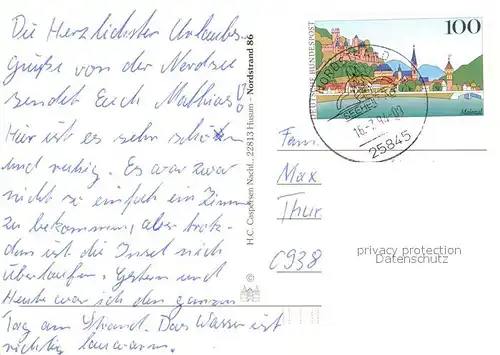 Die Herzlichsten Urlaubs-
grüße von der Nordsee
sendet Euch Mathias!
Hier ist es sehr schön
und ruhig. Es war zwar
nicht so einfach ein Zimmer
zu bekommen, aber trotz-
dem ist die Insel nich
überlaufen. Gestern und
Heute war ich den ganzen
Tag am Strand. Das Wasser ist
richtig lauwarm.
H.C. Caspersen Nachf., 22813 Husum - Nordstrand 86
©
DEUTSCHE BUNDESPOST
100
Maintal
SEEHEIL
25845
Fam.
Max
Thur
0938
privacy protection
Datenschutz